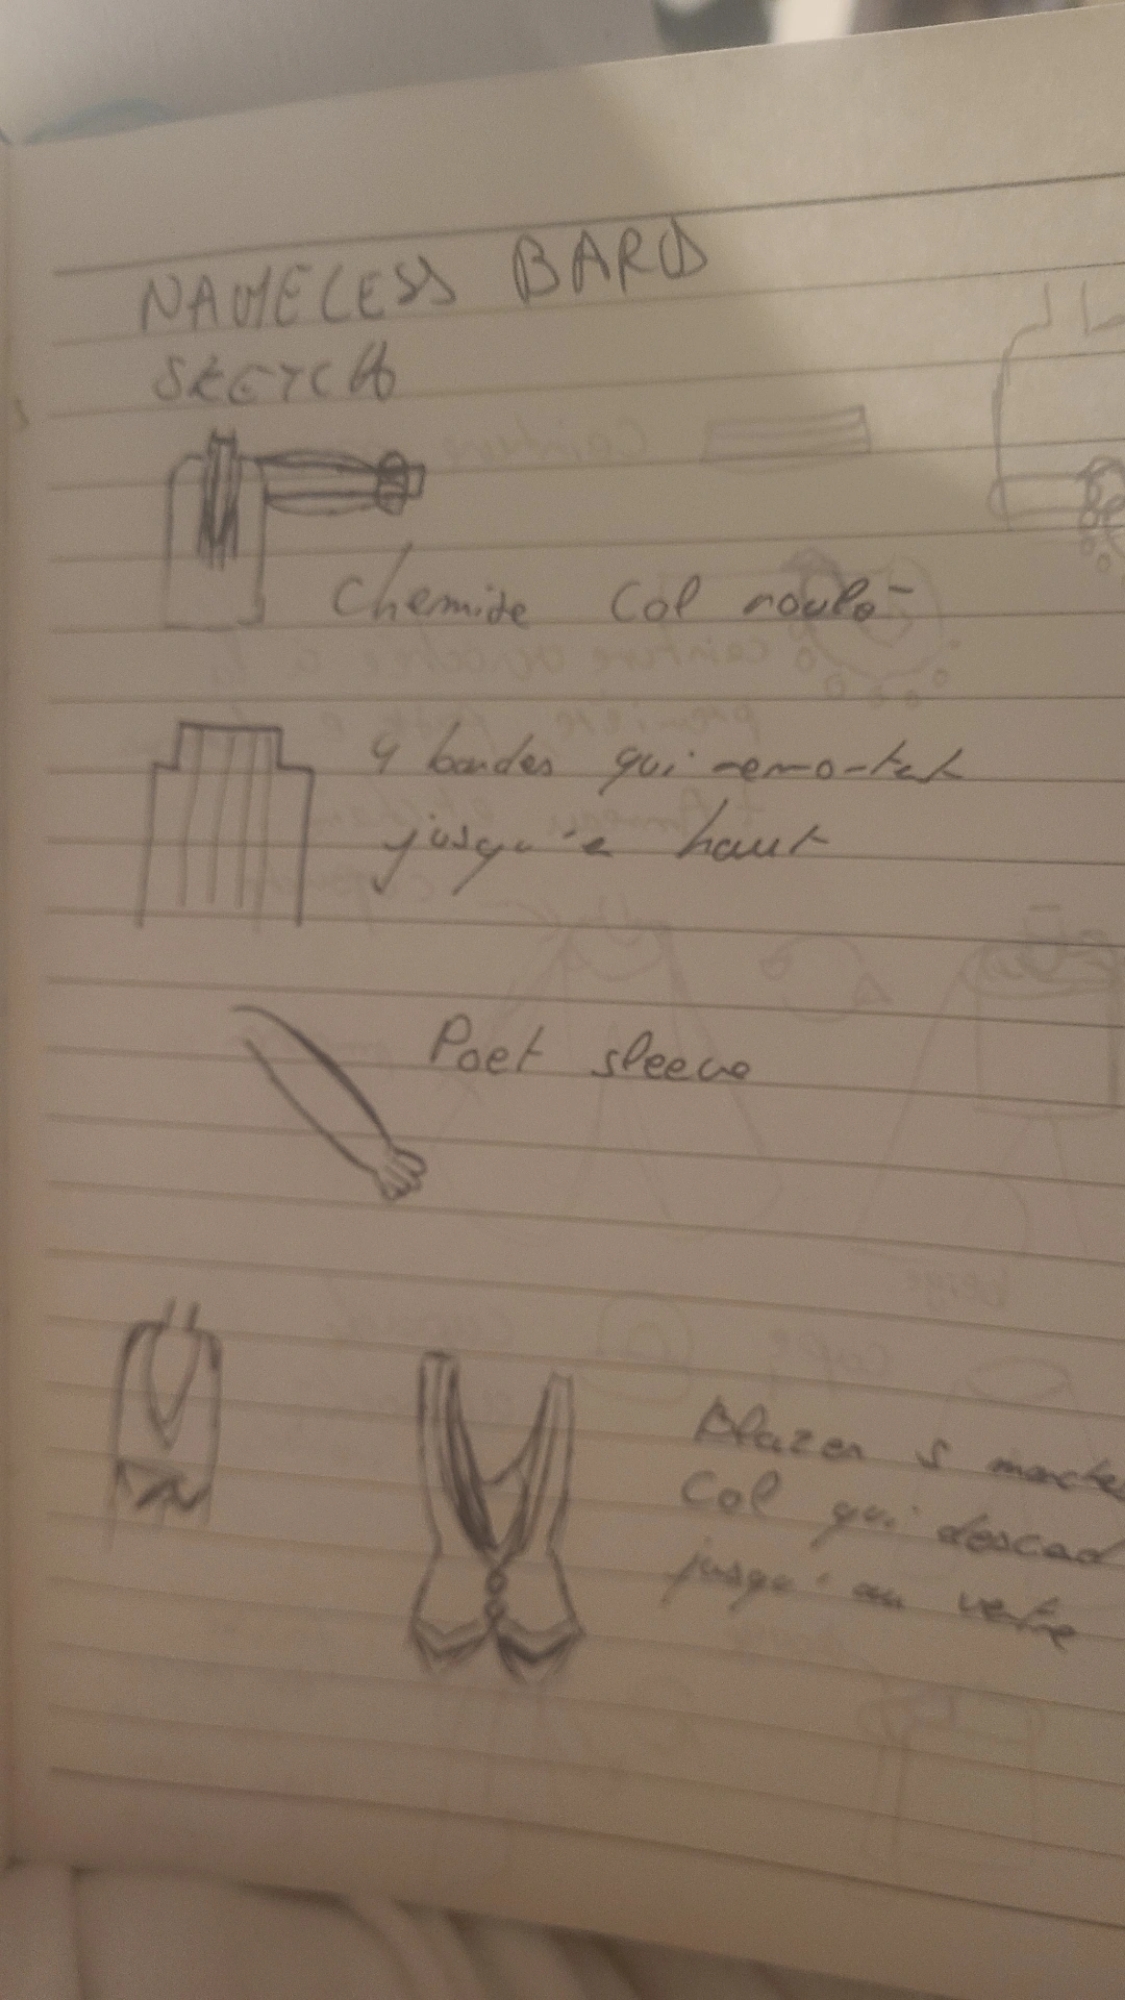 NAMELESS BARD
SKETCH
Chemise Col roulé
4 bandes qui remontent
jusqu'e haut
Poet sleeve
Blazer s manche
Col qui descend
jusqu'au ventre